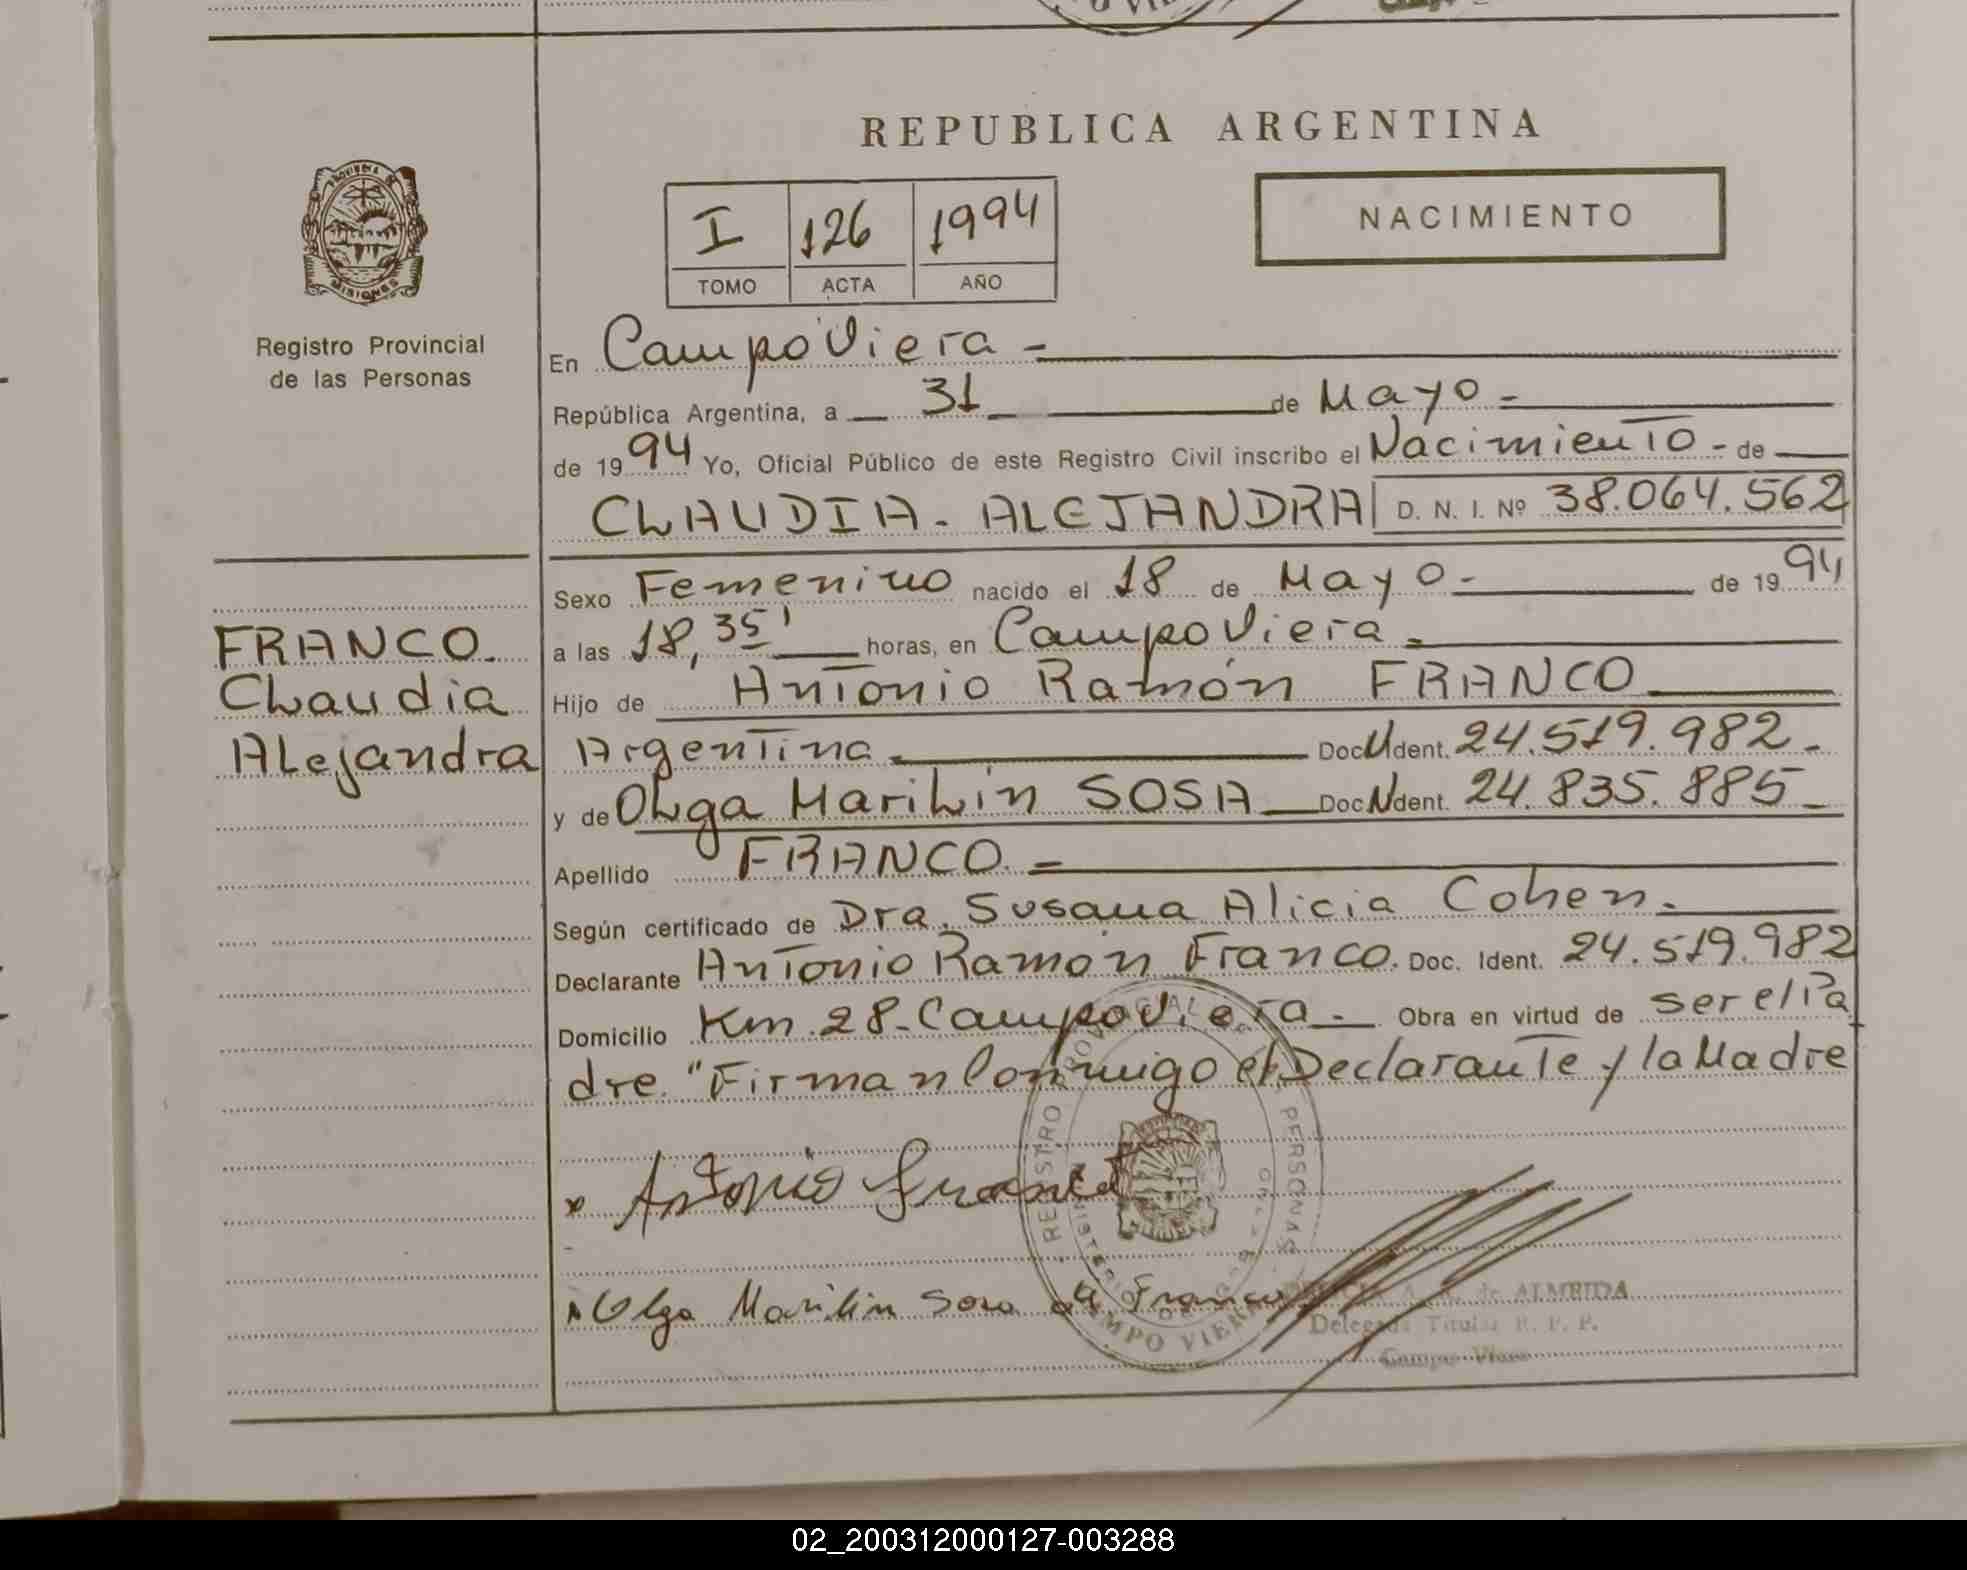 REPUBLICA ARGENTINA
PROVINCIA DE
MISIONES
Registro Provincial
de las Personas
I 126 1994
TOMO ACTA AÑO
NACIMIENTO
En Campo Viera -
República Argentina, a 31 de Mayo -
de 1994 Yo, Oficial Público de este Registro Civil inscribo el Nacimiento - de
CLAUDIA - ALEJANDRA D. N. I. Nº 38.064.562
Sexo Femenino nacido el 18 de Mayo - de 1994
a las 18,35' horas, en Campo Viera -
Hijo de Antonio Ramón FRANCO
Argentina Doc Ident. 24.519.982 -
y de Olga Marilin SOSA Doc Ident. 24.835.885 -
Apellido FRANCO. -
Según certificado de Dra. Susana Alicia Cohen. -
Declarante Antonio Ramón Franco. Doc. Ident. 24.519.982
Domicilio Km. 28 - Campo Viera - Obra en virtud de ser el Pa
dre. "Firman Conmigo el Declarante y la Madre
FRANCO.
Claudia
Alejandra
Antonio Franco
Olga Marilin Sosa de Franco
REGISTRO PROVINCIAL DE PERSONAS
CAMPO VIERA
de ALMEIDA
Delegada Titular R. P. P.
Campo Viera
02_200312000127-003288